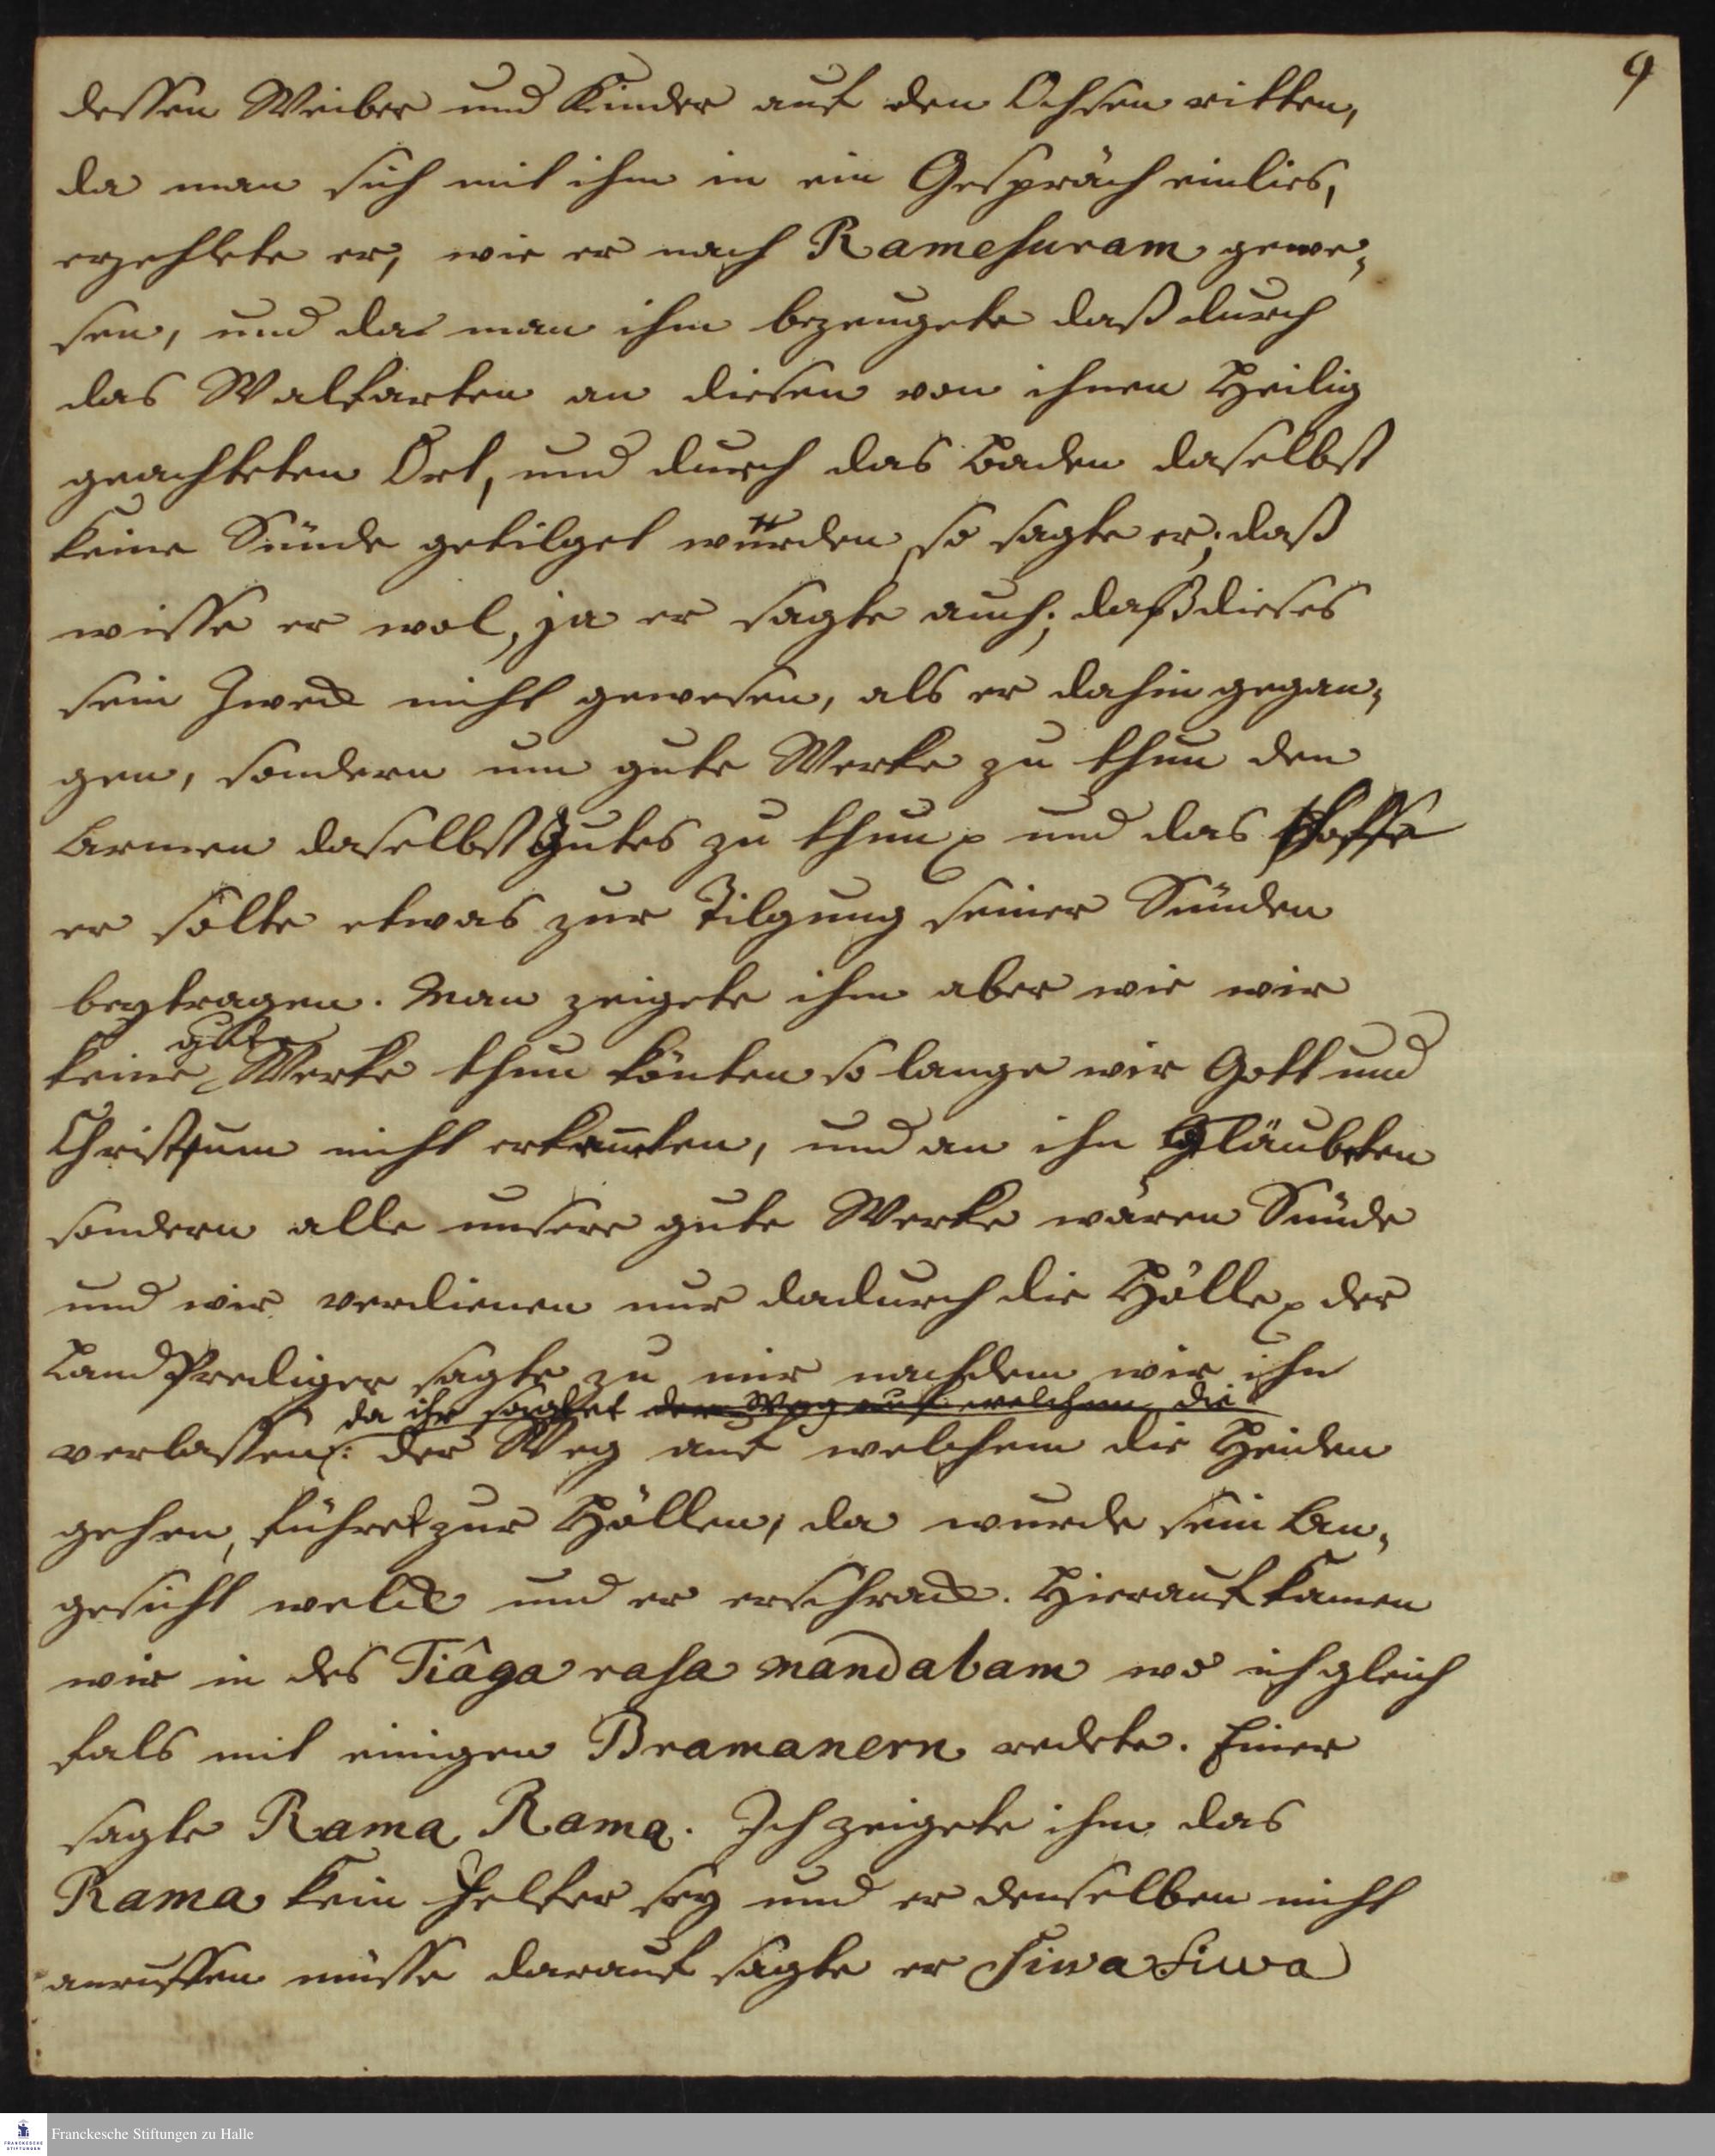 9
dessen Weiber und Kinder auf den Ochsen ritten,
da man sich mit ihm in ein Gespräch einlies,
erzehlete er, wie er nach Ramesuram gewe-
sen, und da man ihm bezeugete daß durch
das Walfarten an diesen von ihnen Heilig
geachteten Ort, und durch das Baden daselbst
keine Sünde getilget würden so sagte er, daß
wisse er wol, ja er sagte auch, daß dieses
sein Zweck nicht gewesen, als er dahin gegan-
gen, sondern um gute Werke zu thun den
Armen daselbst Gutes zu thun und das hoffe
er solte etwas zur Tilgung seiner Sünden
beytragen. Man zeigete ihm aber wie wir
gute
keine Werke thun könten so lange wir Gott und
Christum nicht erkennten, und an ihn Gläubeten
sondern alle unsere gute Werke wären Sünde
und wir verdienen nur dadurch die Hölle der
Land Prediger sagte zu mir nachdem wir ihn
da ihr sagtet der Weg auf welchem die
verlassen: der Weg auf welchem die Heiden
gehen, führet zur Höllen, da wurde sein An-
gesicht welck und er erschrack. Hierauf kamen
wir in des Tiâga rasa mandabam wo ich gleich
fals mit einigen Bramanern redete. Einer
sagte Rama Rama. Ich zeigete ihm das
Rama kein Helfer sey und er denselben nicht
anruffen müsse darauf sagte er Siwa Siwa
Franckesche Stiftungen zu Halle